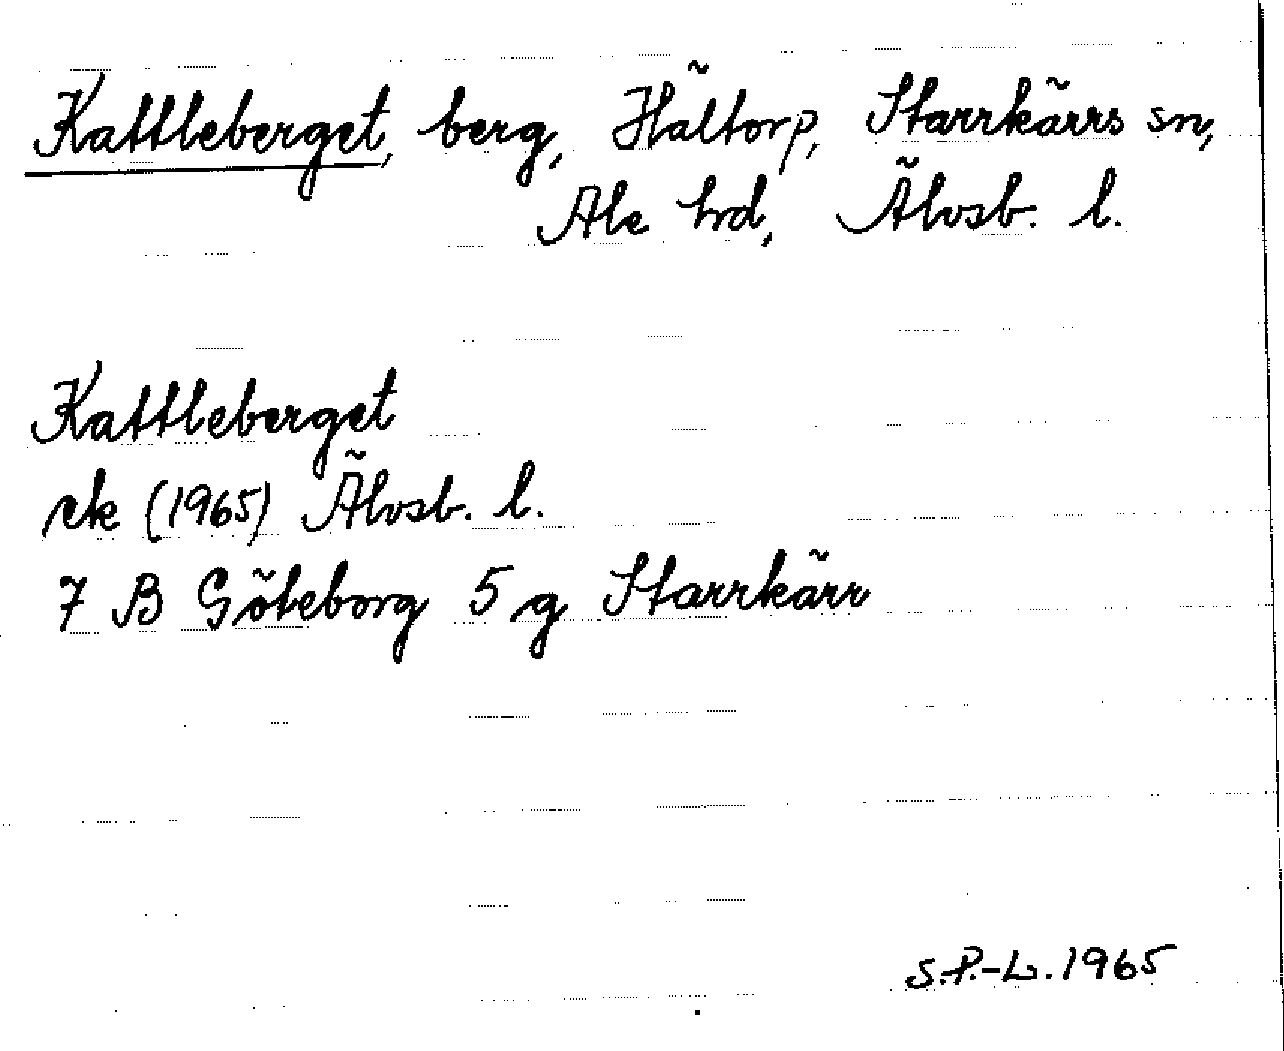 Kattleberget, berg, Hältorp, Starrkärrs sn,
Ale hd, Älvsb. l.
Kattleberget
ek (1965) Älvsb. l.
7 B Göteborg 5 g Starrkärr
S.P.-L. 1965